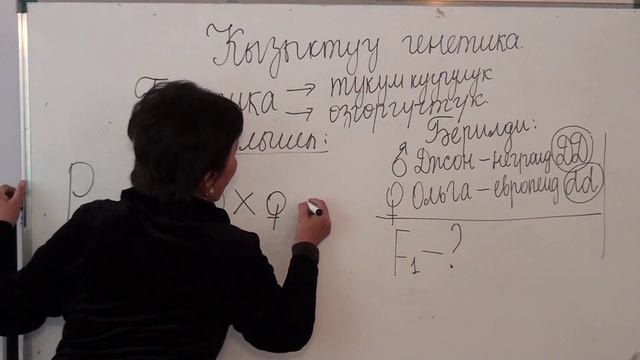 Кызыктуу генетика.
→ тукум куугулук
→ өзгөргүчтүк.
Берилди:
♂ Джон – негроид DD
♀ Ольга – европеид dd
P X ♀
F₁ – ?